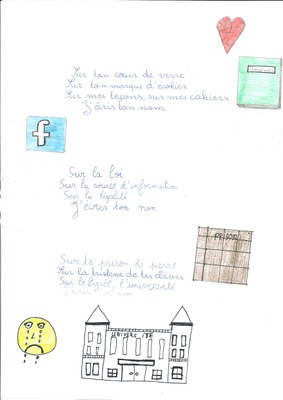 Sur ton cœur de verre
Sur ton masque d'écolier
Sur mes leçons, sur mes cahiers
J'écris ton nom
f
Sur la loi
Sur la source d'information
Sur la légalité
J'écris ton nom
PRISON
Sur ta prison de pierre
Sur la tristesse de tes élèves
Sur le lycée, l'université
J'écris ton nom
UNIVERSITE